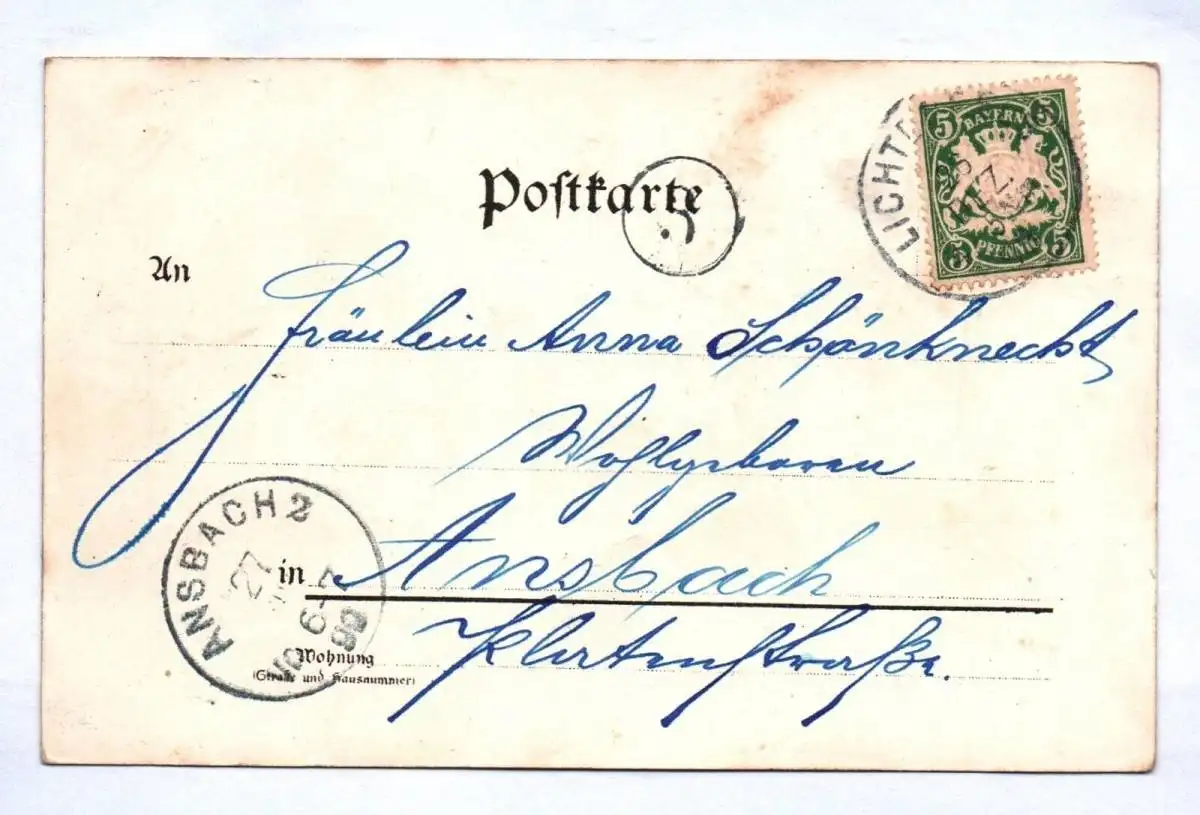 Postkarte
BAYERN
5 5
5 PFENNIG 5
An
Fräulein Anna Schönknecht
Wohlgeboren
ANSBACH 2
27
6-7
99
in Ansbach
Wohnung
(Straße und Hausnummer)